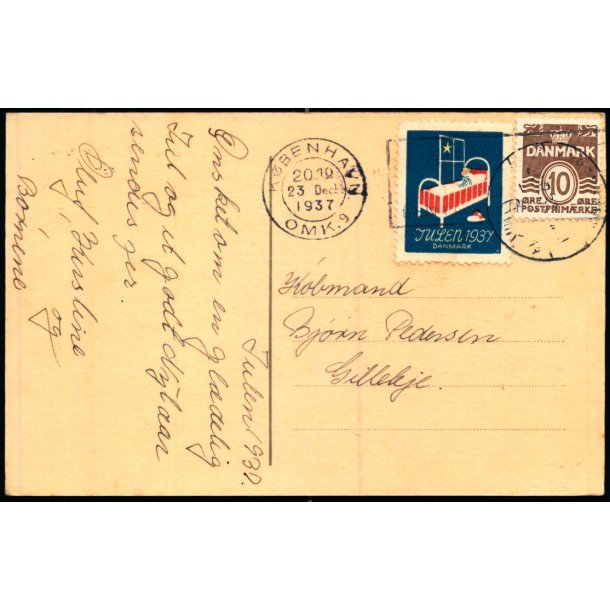 Julen 1930.
Ønsket om en glædelig
Jul og et godt Nytaar
sendes her.
Oluf,
og
Børnene
KØBENHAVN
20.10
23 Dec
1937
OMK. 9
JULEN 1937
DANMARK
DANMARK
10
ØRE ØRE
POSTFRIMÆRKE
Købmand
Bjørn Pedersen
Gilleleje.